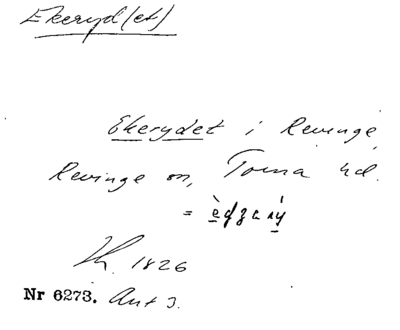 Ekeryd(et)
Ekerydet i Revinge,
Revinge sn, Torna hd.
=
Kh. 1826
Nr 6273. Ant 3.